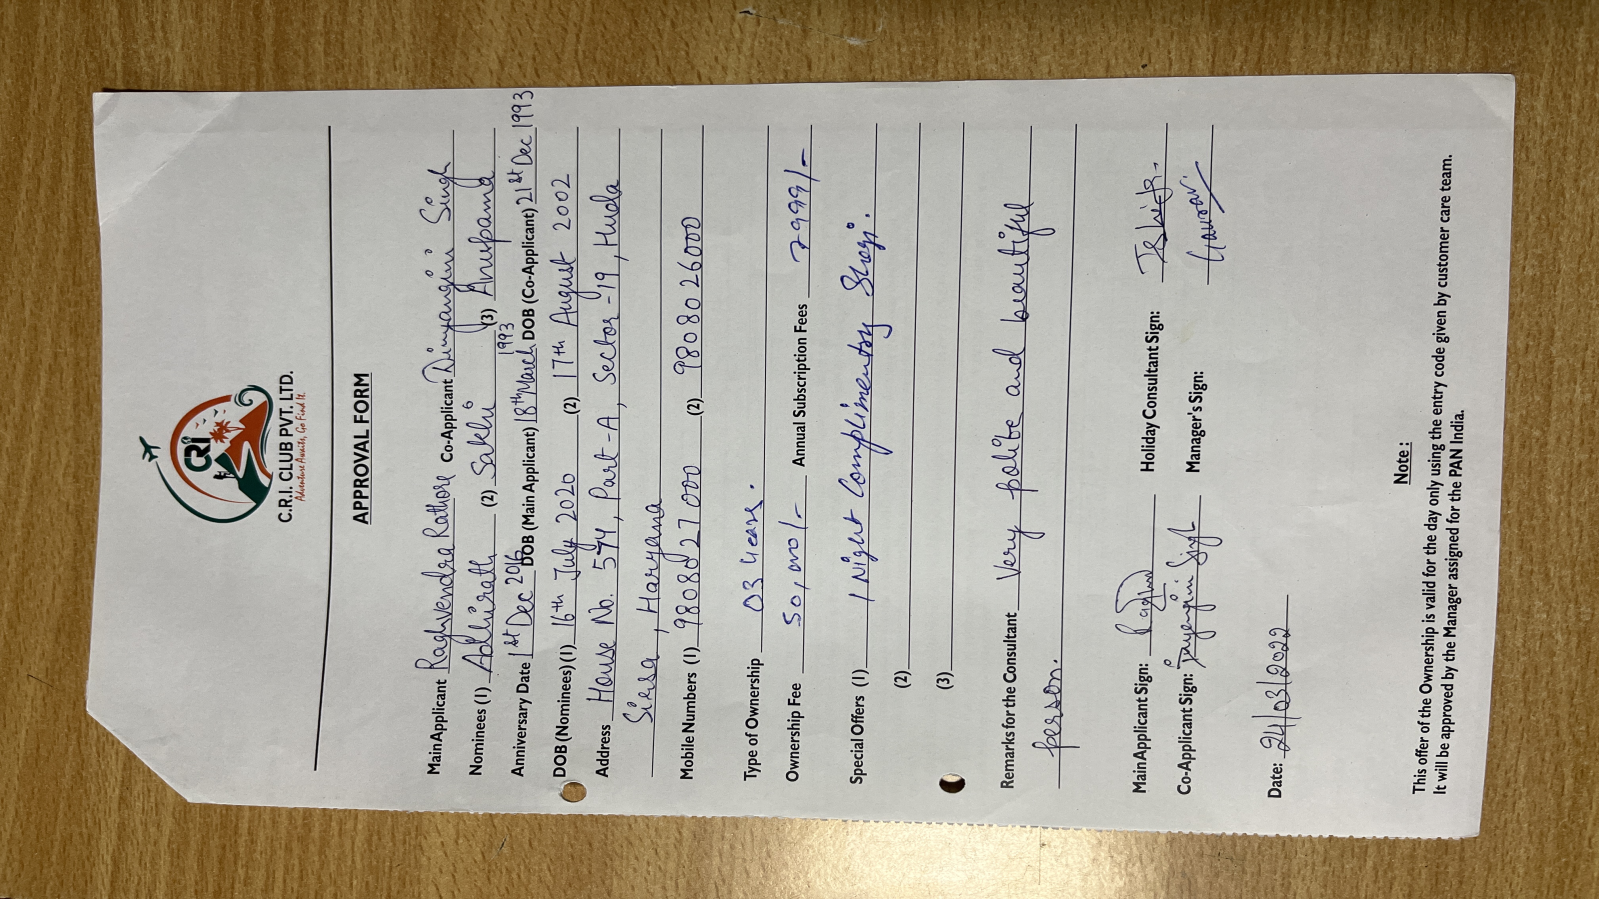 CRI
C.R.I. CLUB PVT. LTD.
Adventure Awaits, Go Find It.
APPROVAL FORM
Main Applicant Raghvendra Rathore Co-Applicant Divyangini Singh
Nominees (1) Adhirath (2) Sakhi (3) Anupama
Anniversary Date 1st Dec 2016 DOB (Main Applicant) 18th March 1993 DOB (Co-Applicant) 21st Dec 1993
DOB (Nominees) (1) 16th July 2020 (2) 17th August 2002
Address House No. 574, Part-A, Sector-19, Huda
Sirsa, Haryana
Mobile Numbers (1) 9808027000 (2) 9808026000
Type of Ownership 03 Years.
Ownership Fee 50,000/- Annual Subscription Fees 7999/-
Special Offers (1) 1 Night Complimentry Shogi.
(2)
(3)
Remarks for the Consultant Very polite and beautiful
person.
Main Applicant Sign: Raghv Holiday Consultant Sign:
Co-Applicant Sign: Divyangini Singh Manager's Sign: Gaurav
Date: 24/03/2022
Note :
This offer of the Ownership is valid for the day only using the entry code given by customer care team.
It will be approved by the Manager assigned for the PAN India.